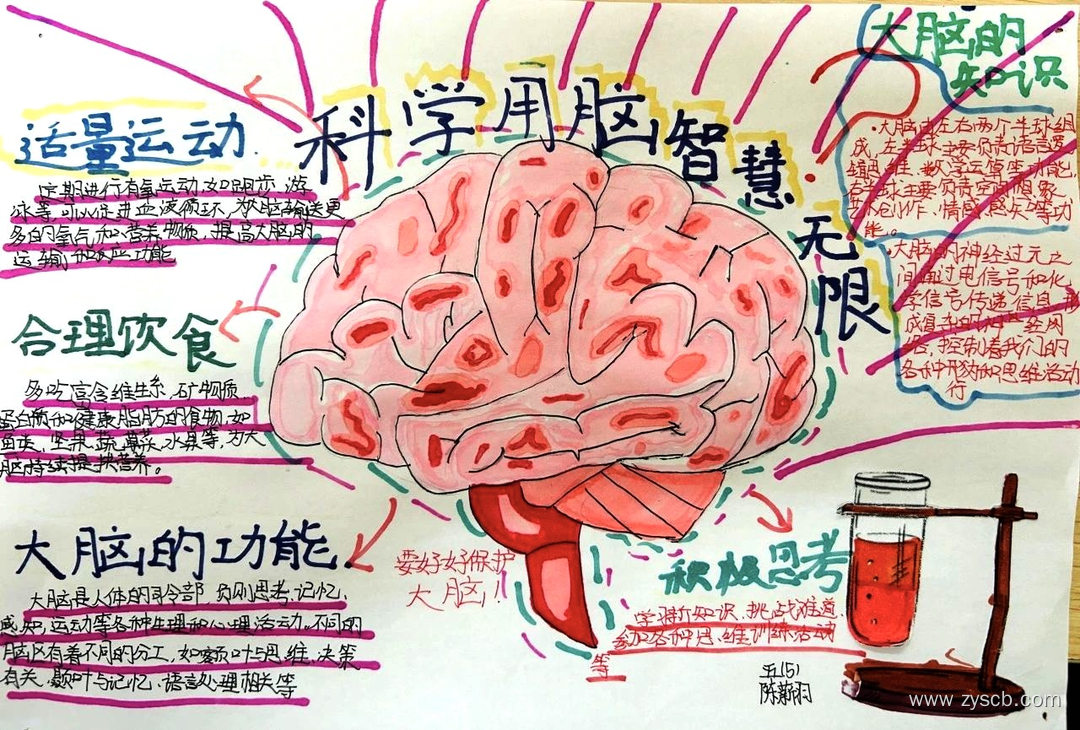 科学用脑智慧无限
大脑的
知识
适量运动
定期进行有氧运动如跑步、游
泳等,可以促进血液循环,为脑输送更
多的氧气和营养物质,提高大脑的
运输和反应功能
合理饮食
多吃富含维生系,矿物质,
蛋白质和健康脂肪的食物,如
鱼类,坚果,蔬菜,水果等,为大
脑持续提供营养。
大脑的功能
大脑是人体的司令部 负则思考、记忆,
感知,运动等各种生理和心理活动。不同的
脑区有着不同的分工,如额叶与思维,决策
有关,颞叶与记忆,语言处理相关等
·大脑由左右两个半球组
成,左半球主要负责语言逻
辑思维、数学运算等功能,
右半球主要负责空间想象
艺术创作、情感感知等功
能。
·大脑的神经过元之
间通过电信号和化
学信号传递信息,形
成复杂的神经网
络,控制着我们的
各种形为和思维活动
行
要好好保护
大脑!
积极思考
学习新知识、挑战难道
参加各种思维训练活动
等
五(5)
陈新羽
www.zyscb.com